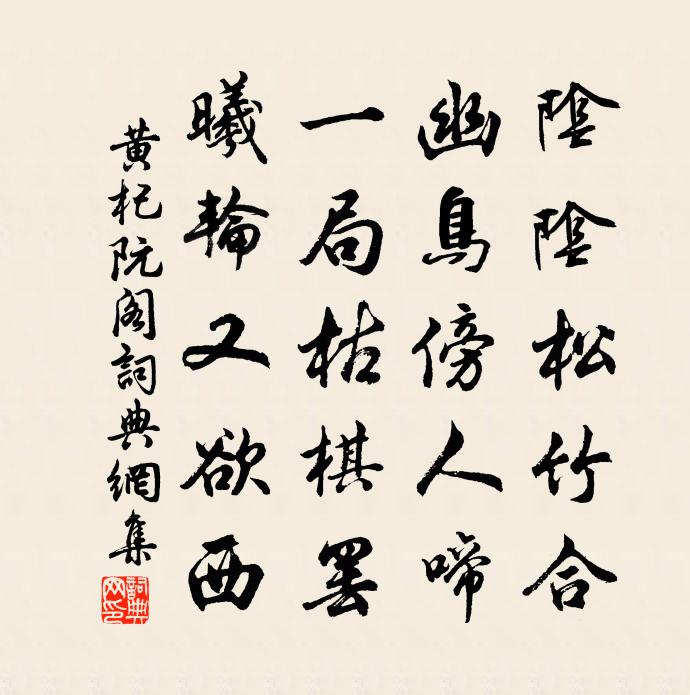 陰陰松竹合
幽鳥傍人啼
一局枯棋罷
曦輪又欲西
黄杞阮閣詞典網集
詞典
网印